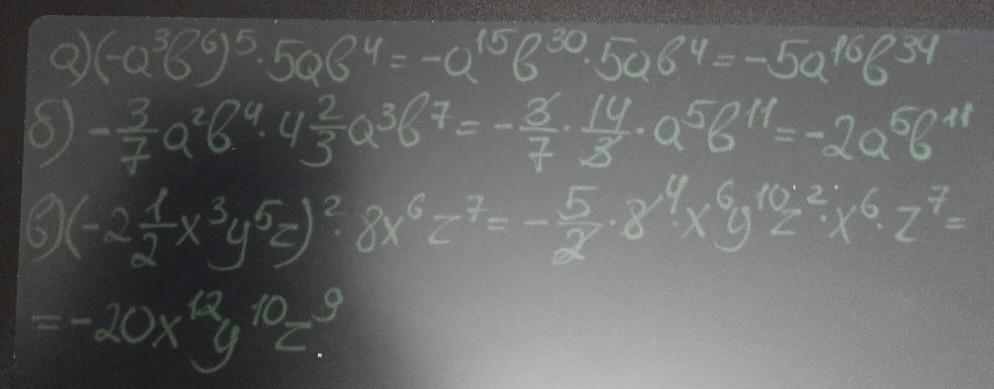 а)(-a³b⁶)⁵·5ab⁴=-a¹⁵b³⁰·5ab⁴=-5a¹⁶b³⁴
б) -3/7 a²b⁴·4 2/3 a³b⁷=-3/7·14/3·a⁵b¹¹=-2a⁵b¹¹
в)(-2 1/2 x³y⁵z)²·8x⁶z⁷=-5/2·8⁴·x⁶y¹⁰z²·x⁶·z⁷=
=-20x¹²y¹⁰z⁹